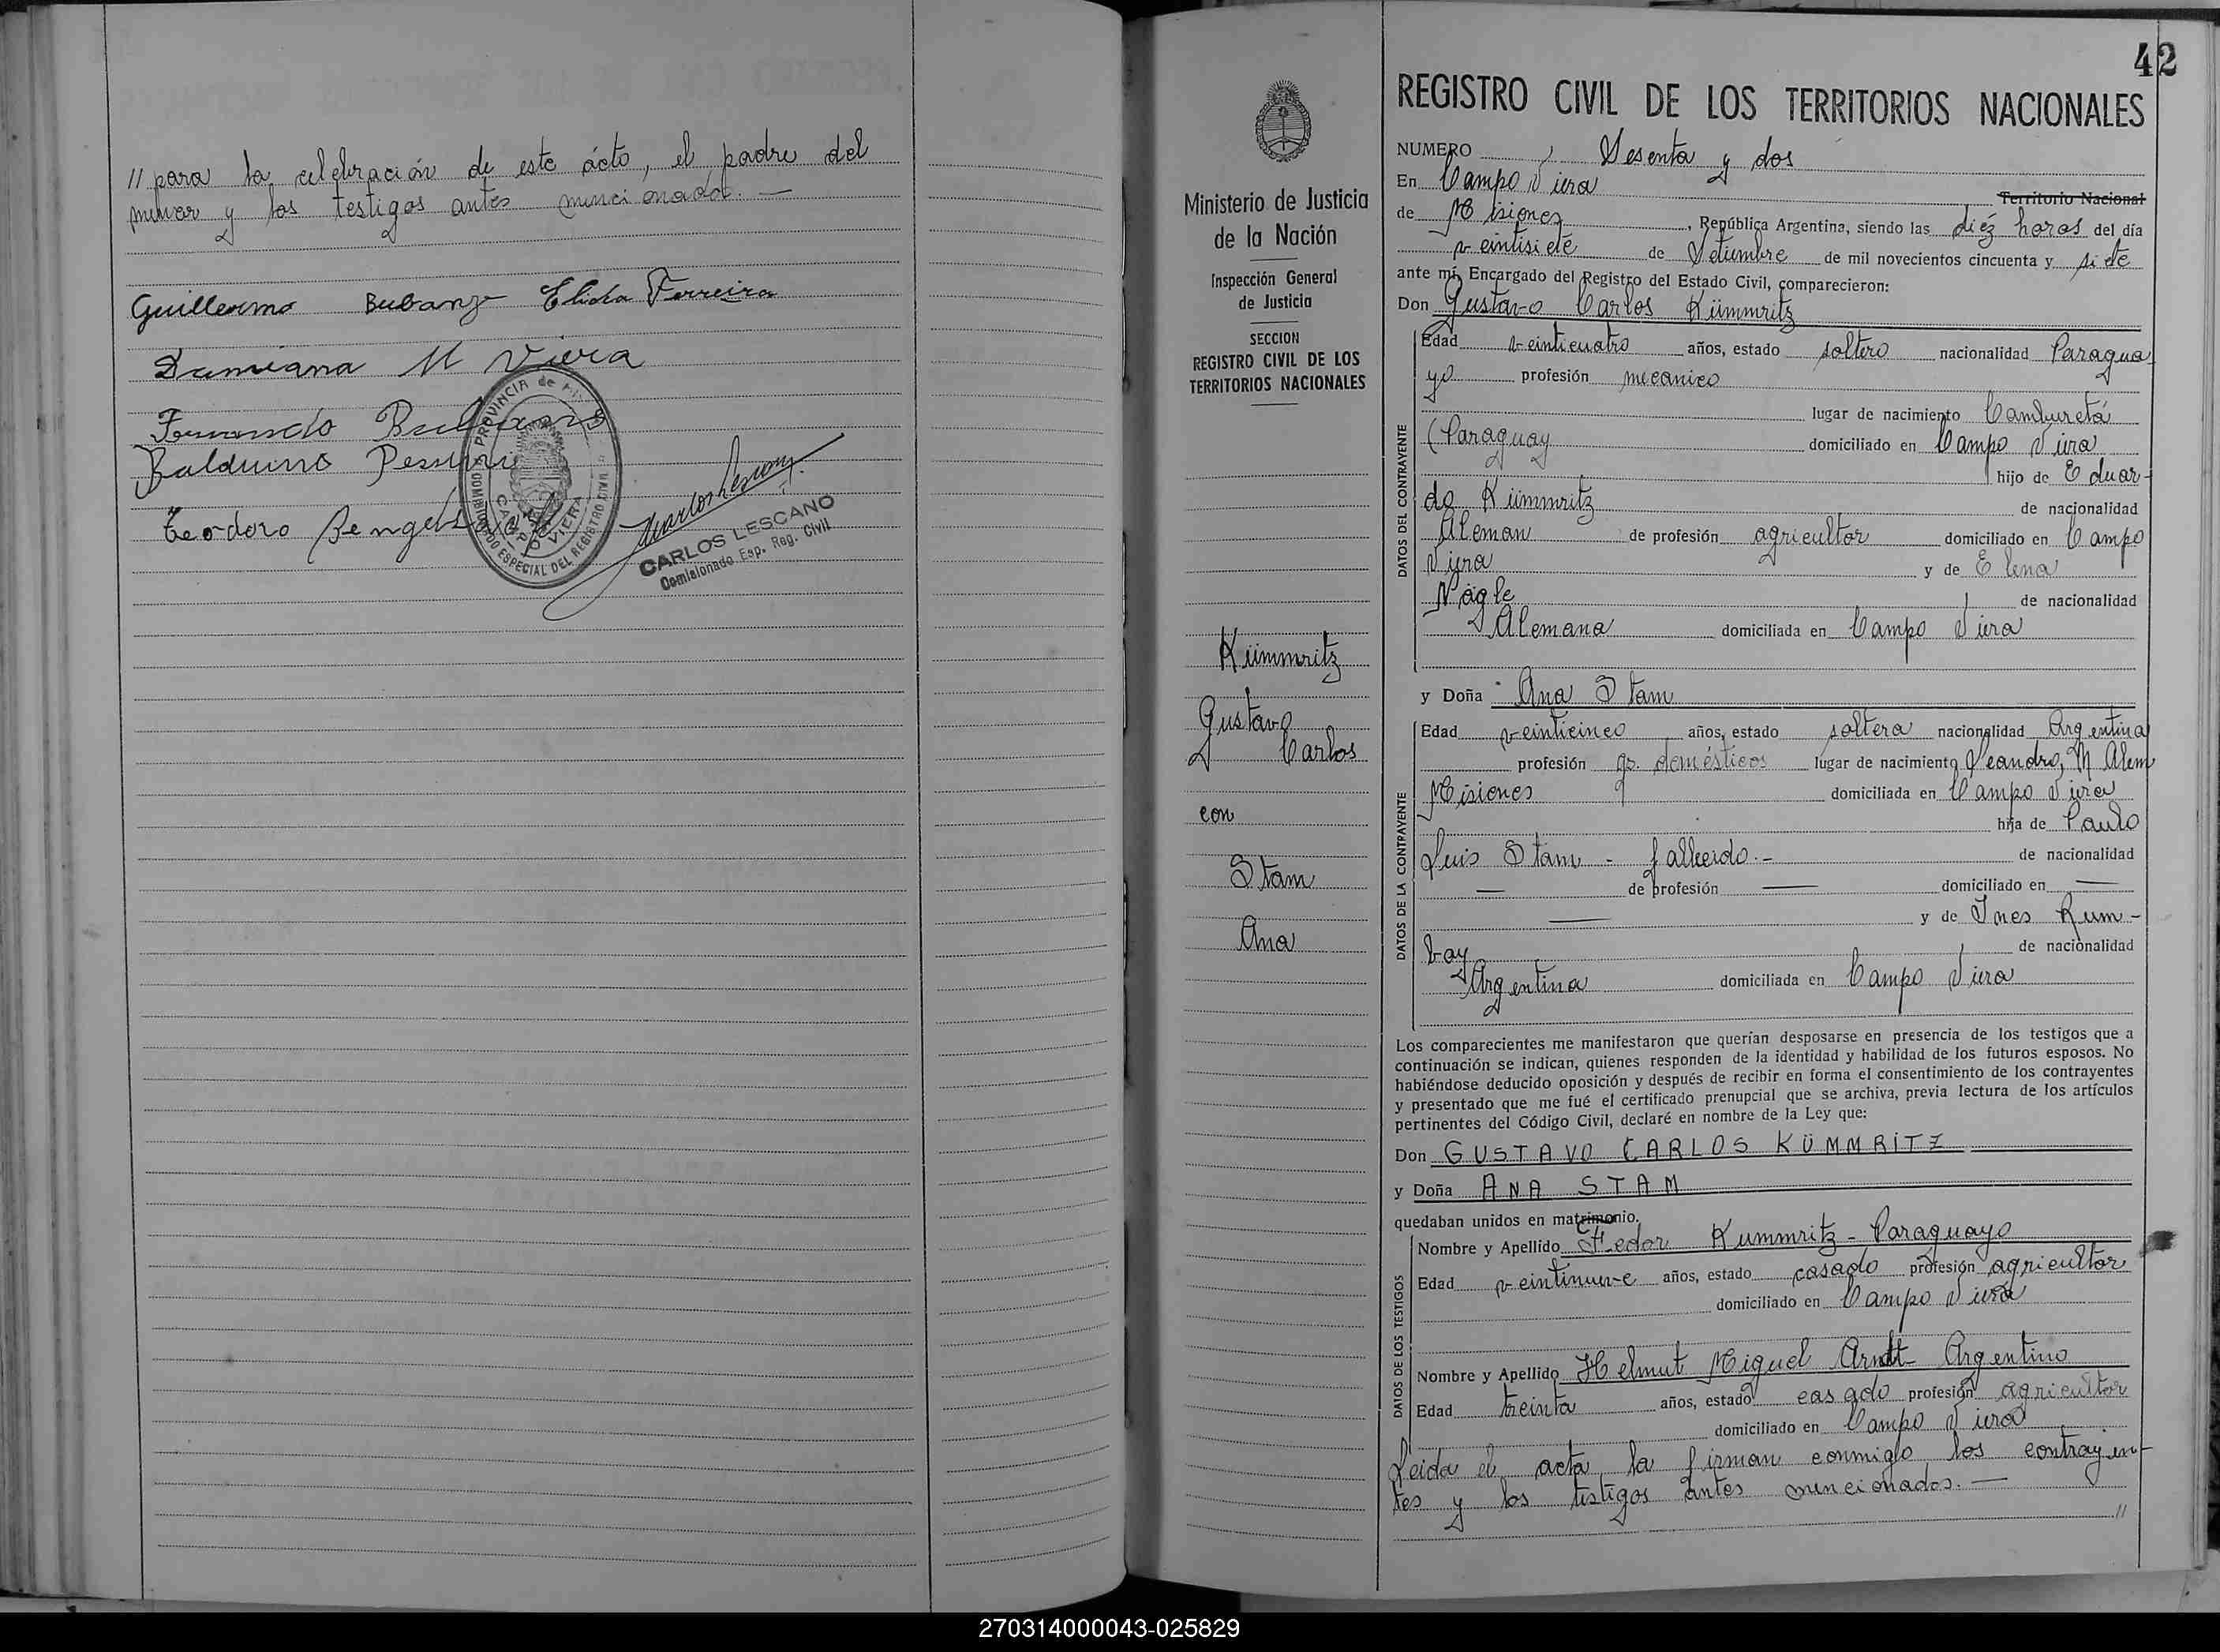 // para la celebración de este ácto, el padre del
menor y los testigos antes mencionados.—
Guillermo Bubanz Elida Ferreira
Damiana M Viera
Fernando
Balduino
Teodoro
PROVINCIA de
CAMPO VIERA
COMISIONADO ESPECIAL DEL REGISTRO CIVIL
CARLOS LESCANO
Comisionado Esp. Reg. Civil
42
Ministerio de Justicia
de la Nación
Inspección General
de Justicia
SECCION
REGISTRO CIVIL DE LOS
TERRITORIOS NACIONALES
Kümmritz
Gustavo
Carlos
con
Stam
Ana
REGISTRO CIVIL DE LOS TERRITORIOS NACIONALES
NUMERO Sesenta y dos
En Campo Viera Territorio Nacional
de Misiones, República Argentina, siendo las diéz horas del día
veintisiete de Setiembre de mil novecientos cincuenta y siete
ante mí, Encargado del Registro del Estado Civil, comparecieron:
Don Gustavo Carlos Kümmritz
DATOS DEL CONTRAYENTE
Edad veinticuatro años, estado soltero nacionalidad Paragua
yo profesión mecanico
lugar de nacimiento Cambyretá
(Paraguay domiciliado en Campo Viera
hijo de Eduar-
do Kümmritz de nacionalidad
Aleman de profesión agricultor domiciliado en Campo
Viera y de Elena
Nägle de nacionalidad
Alemana domiciliada en Campo Viera
y Doña Ana Stam
DATOS DE LA CONTRAYENTE
Edad veinticinco años, estado soltera nacionalidad Argentina
profesión qs. domésticos lugar de nacimiento Leandro N Alem
Misiones domiciliada en Campo Viera
hija de Paulo
Luis Stam - fallecido.- de nacionalidad
— de profesión — domiciliado en —
— y de Ines Rum-
bay de nacionalidad
Argentina domiciliada en Campo Viera
Los comparecientes me manifestaron que querían desposarse en presencia de los testigos que a
continuación se indican, quienes responden de la identidad y habilidad de los futuros esposos. No
habiéndose deducido oposición y después de recibir en forma el consentimiento de los contrayentes
y presentado que me fué el certificado prenupcial que se archiva, previa lectura de los artículos
pertinentes del Código Civil, declaré en nombre de la Ley que:
Don GUSTAVO CARLOS KÜMMRITZ
y Doña ANA STAM
quedaban unidos en matrimonio.
DATOS DE LOS TESTIGOS
Nombre y Apellido Fedor Kummritz - Paraguayo
Edad veintinueve años, estado casado profesión agricultor
domiciliado en Campo Viera
Nombre y Apellido Helmut Miguel Arndt Argentino
Edad treinta años, estado casado profesión agricultor
domiciliado en Campo Viera
Leida el acta la firman conmigo los contrayen-
tes y los testigos antes mencionados.—
//
270314000043-025829